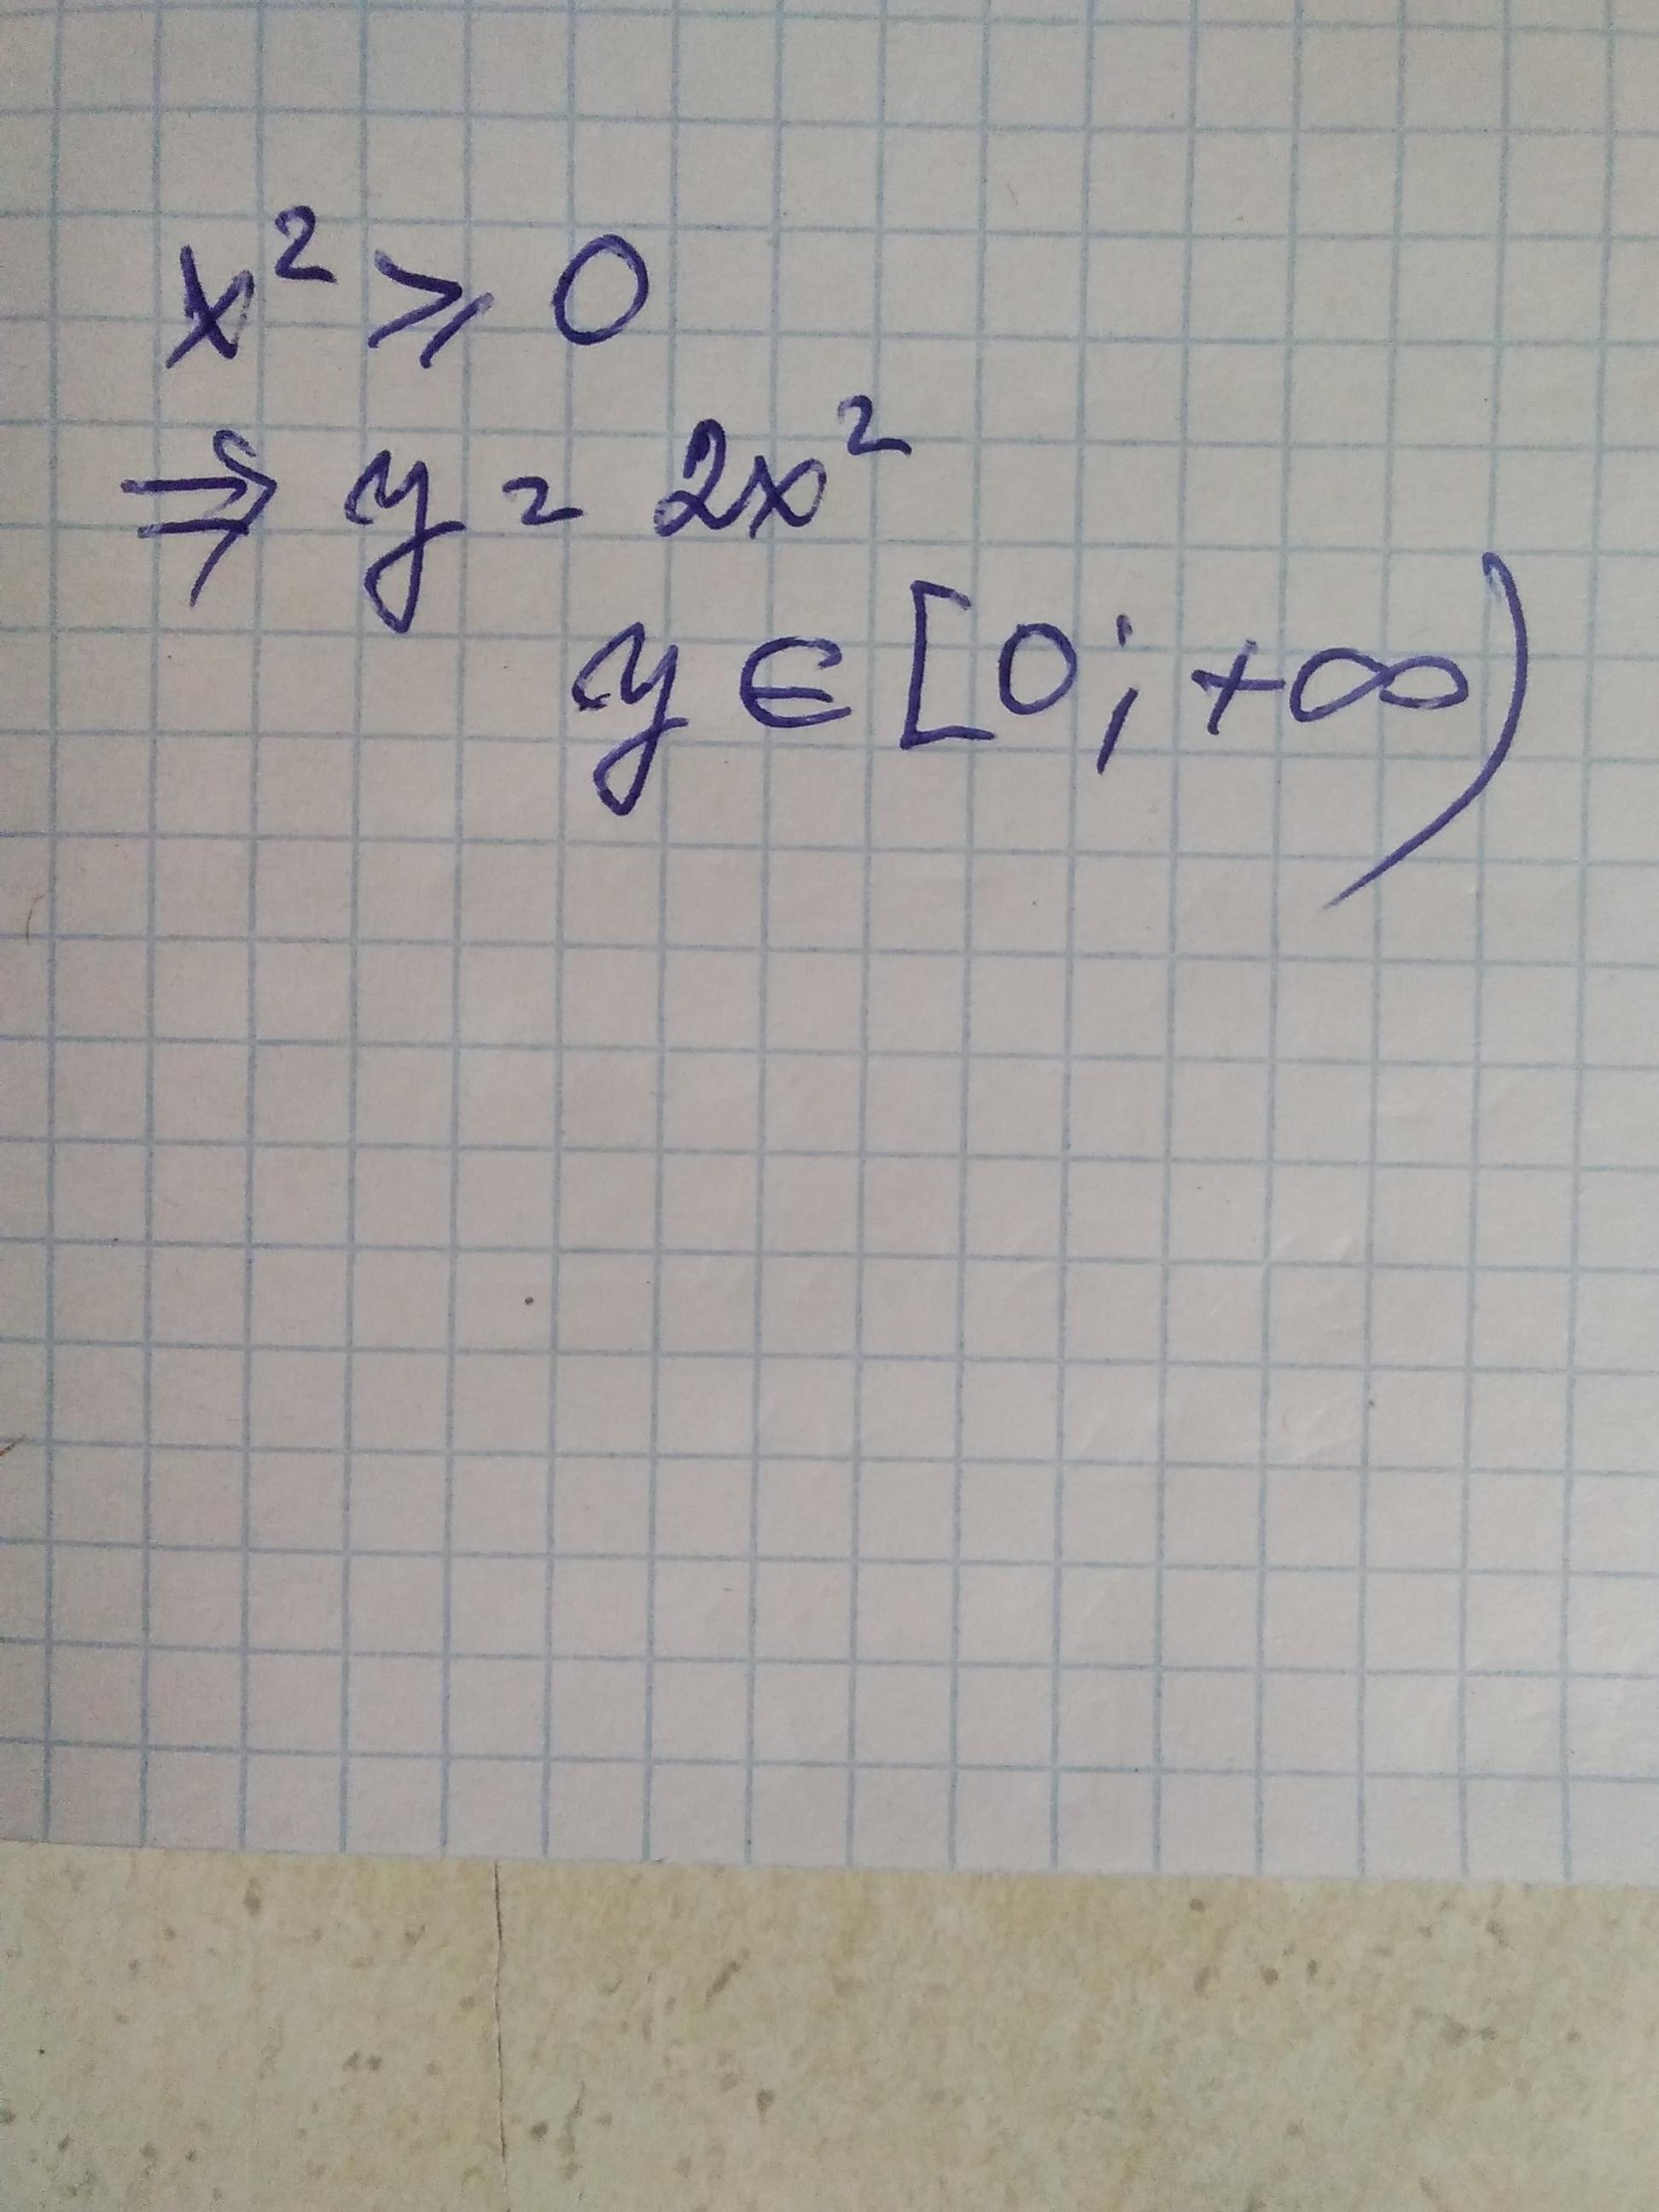 x² ⩾ 0
⇒ y = 2x²
y ∈ [0; +∞)